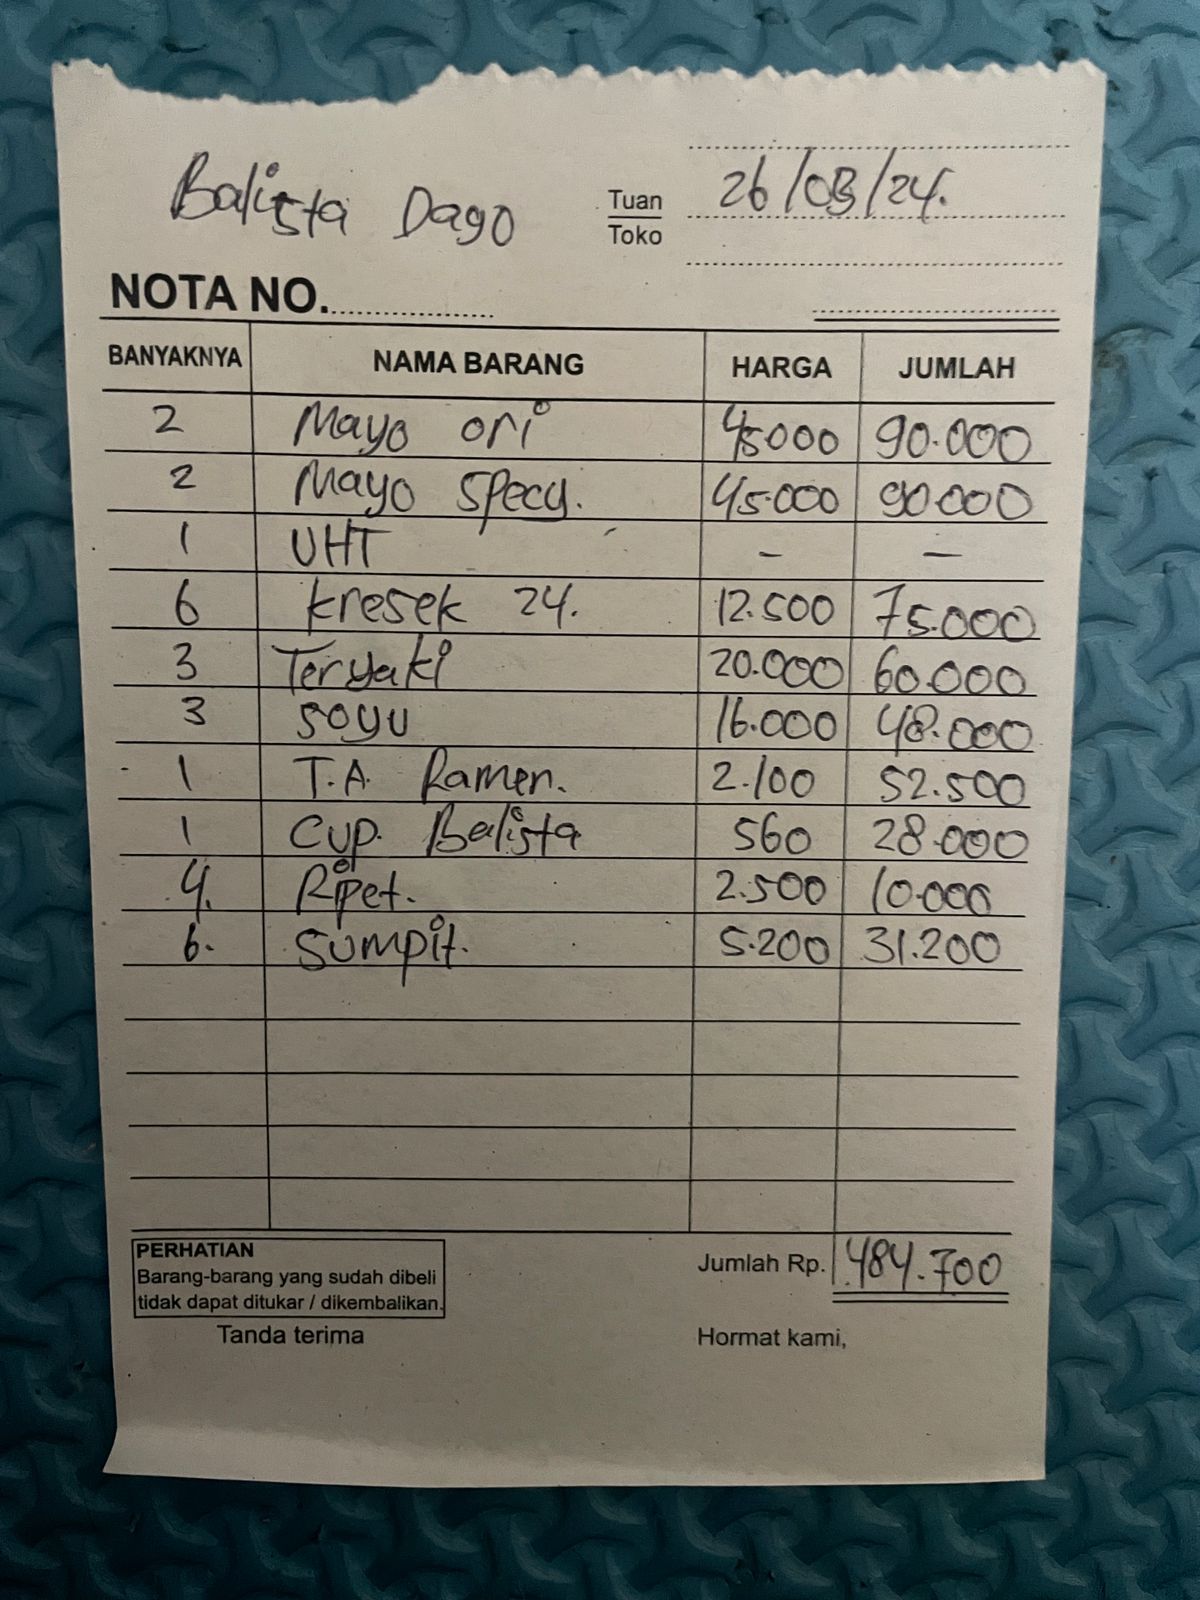 Balista Dago
Tuan
Toko
26/03/24.
NOTA NO.
BANYAKNYA NAMA BARANG HARGA JUMLAH
2 Mayo ori 45000 90.000
2 Mayo specy. 45.000 90.000
1 UHT - -
6 kresek 24. 12.500 75.000
3 Teryaki 20.000 60.000
3 soyu 16.000 48.000
1 T.A. Ramen. 2.100 52.500
1 Cup. Balista 560 28.000
4. Ripet. 2.500 10.000
6. sumpit. 5.200 31.200
PERHATIAN
Barang-barang yang sudah dibeli
tidak dapat ditukar / dikembalikan.
Jumlah Rp. 484.700
Tanda terima
Hormat kami,